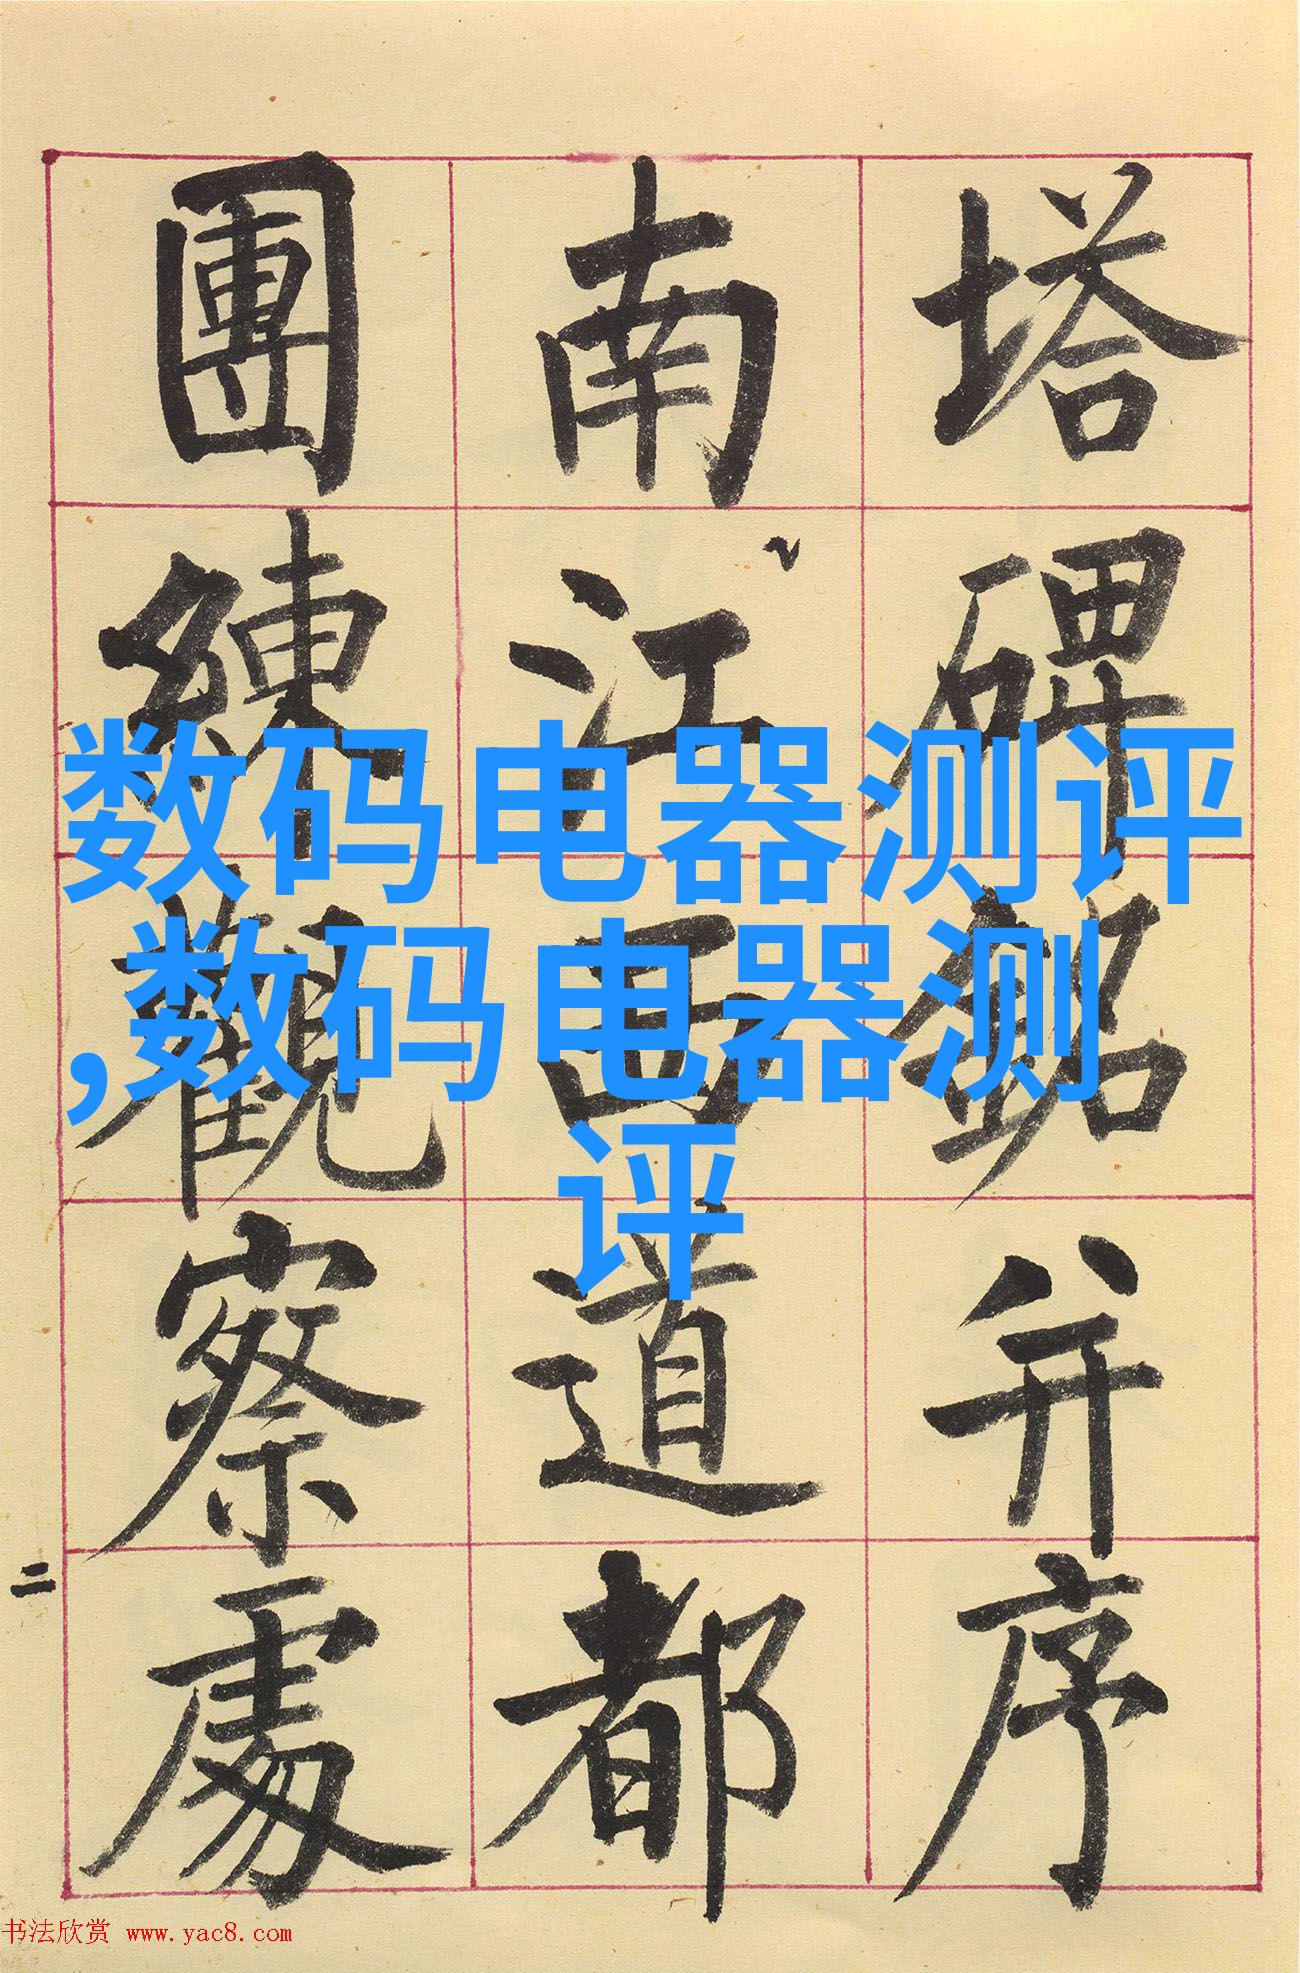 塔碑銘并序
南江西道都
團練觀察處
二
数码电器测评
,数码电器测
评
书法欣赏 www.yac8.com